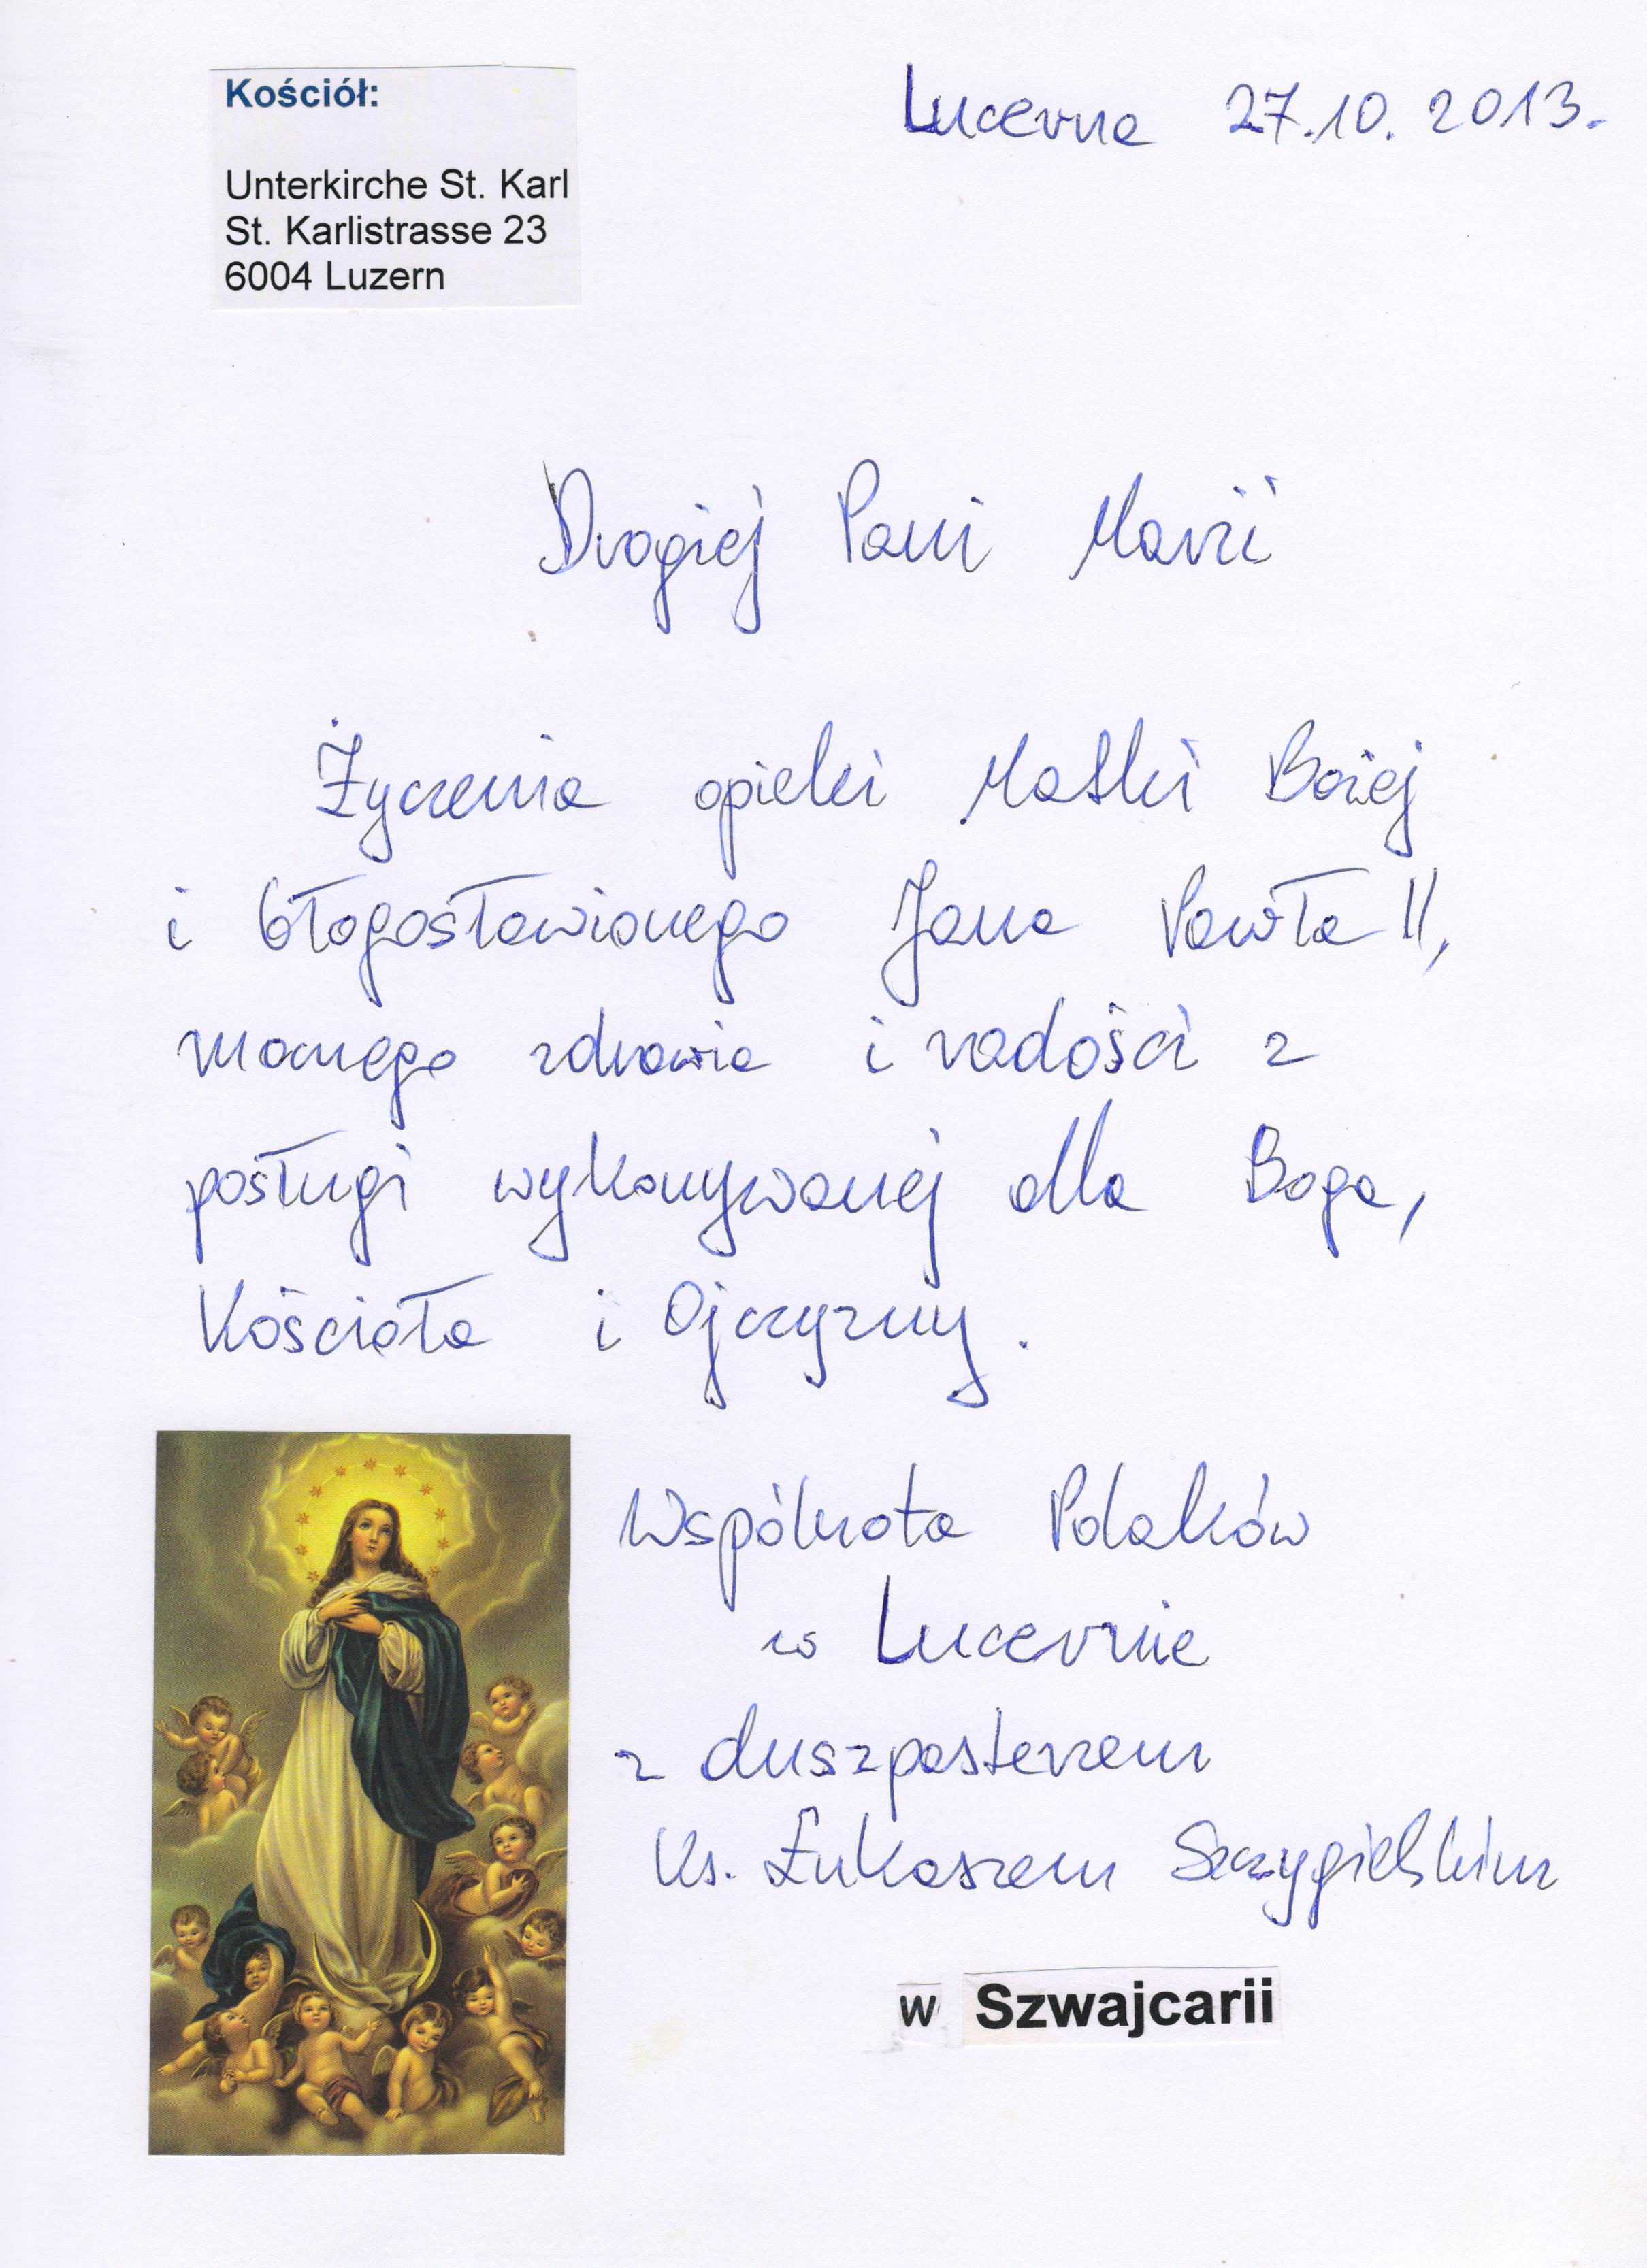 Kościół:
Unterkirche St. Karl
St. Karlistrasse 23
6004 Luzern
Lucerna 27.10.2013.
Drogiej Pani Marii
Życzenia opieki Matki Bożej
i błogosławionego Jana Pawła II,
mocnego zdrowia i radości z
posługi wykonywanej dla Boga,
Kościoła i Ojczyzny.
Wspólnota Polaków
w Lucernie
z duszpasterzem
Ks. Łukaszem Szczygielskim
w Szwajcarii